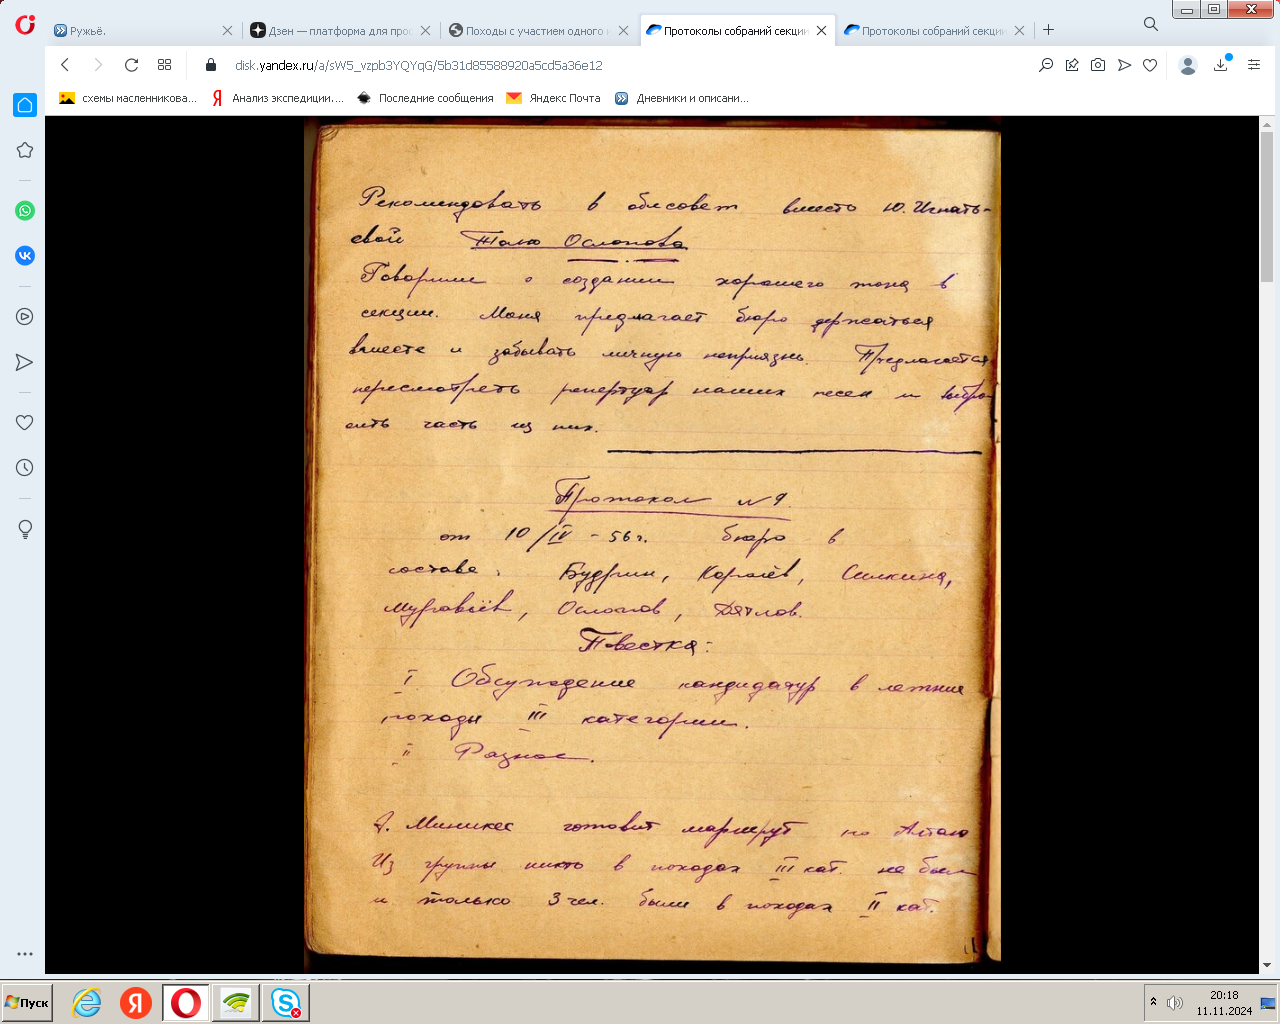 Ружьё.
Дзен — платформа для про
Походы с участием одного
Протоколы собраний секции
Протоколы собраний секции
disk.yandex.ru/a/sW5_vzpb3YQYqG/5b31d85588920a5cd5a36e12
схемы масленникова...
Анализ экспедиции,...
Последние сообщения
Яндекс Почта
Дневники и описани...
Рекомендовать в облсовет вместо Ю. Игнать-
евой Толю Ослопова
Говорили о создании хорошего тона в
секции. Моня предлагает бюро держаться
вместе и забывать личную неприязнь. Предлагается
пересмотреть репертуар наших песен и выбро-
сить часть из них.
Протокол № 9.
от 10/IV - 56 г. бюро в
составе: Будрин, Королёв, Силкина,
Муравьёв, Ослопов, Дятлов.
Повестка:
I. Обсуждение кандидатур в летние
походы III категории.
II Разное.
Миникес готовит маршрут по Алтаю
Из группы никто в походах III кат. не был
и только 3 чел. были в походах II кат.
Пуск
20:18
11.11.2024